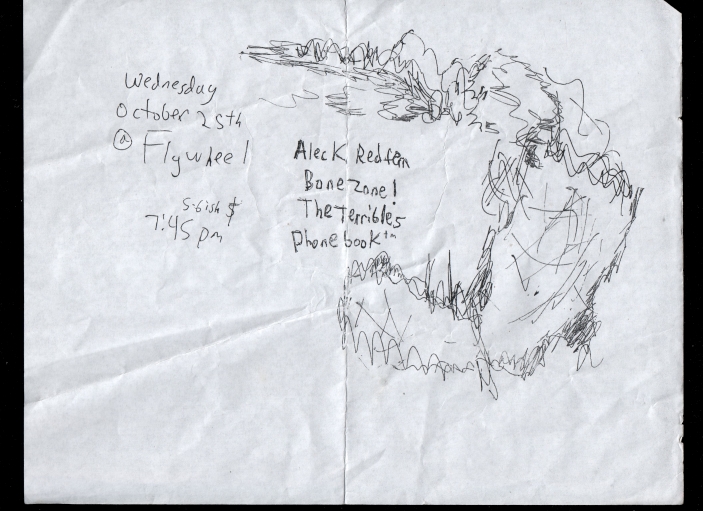 Wednesday
October 25th
@ Flywheel
5-6ish $
7:45 pm
Aleck Redfern
Bone Zone!
The Terribles
Phonebook™